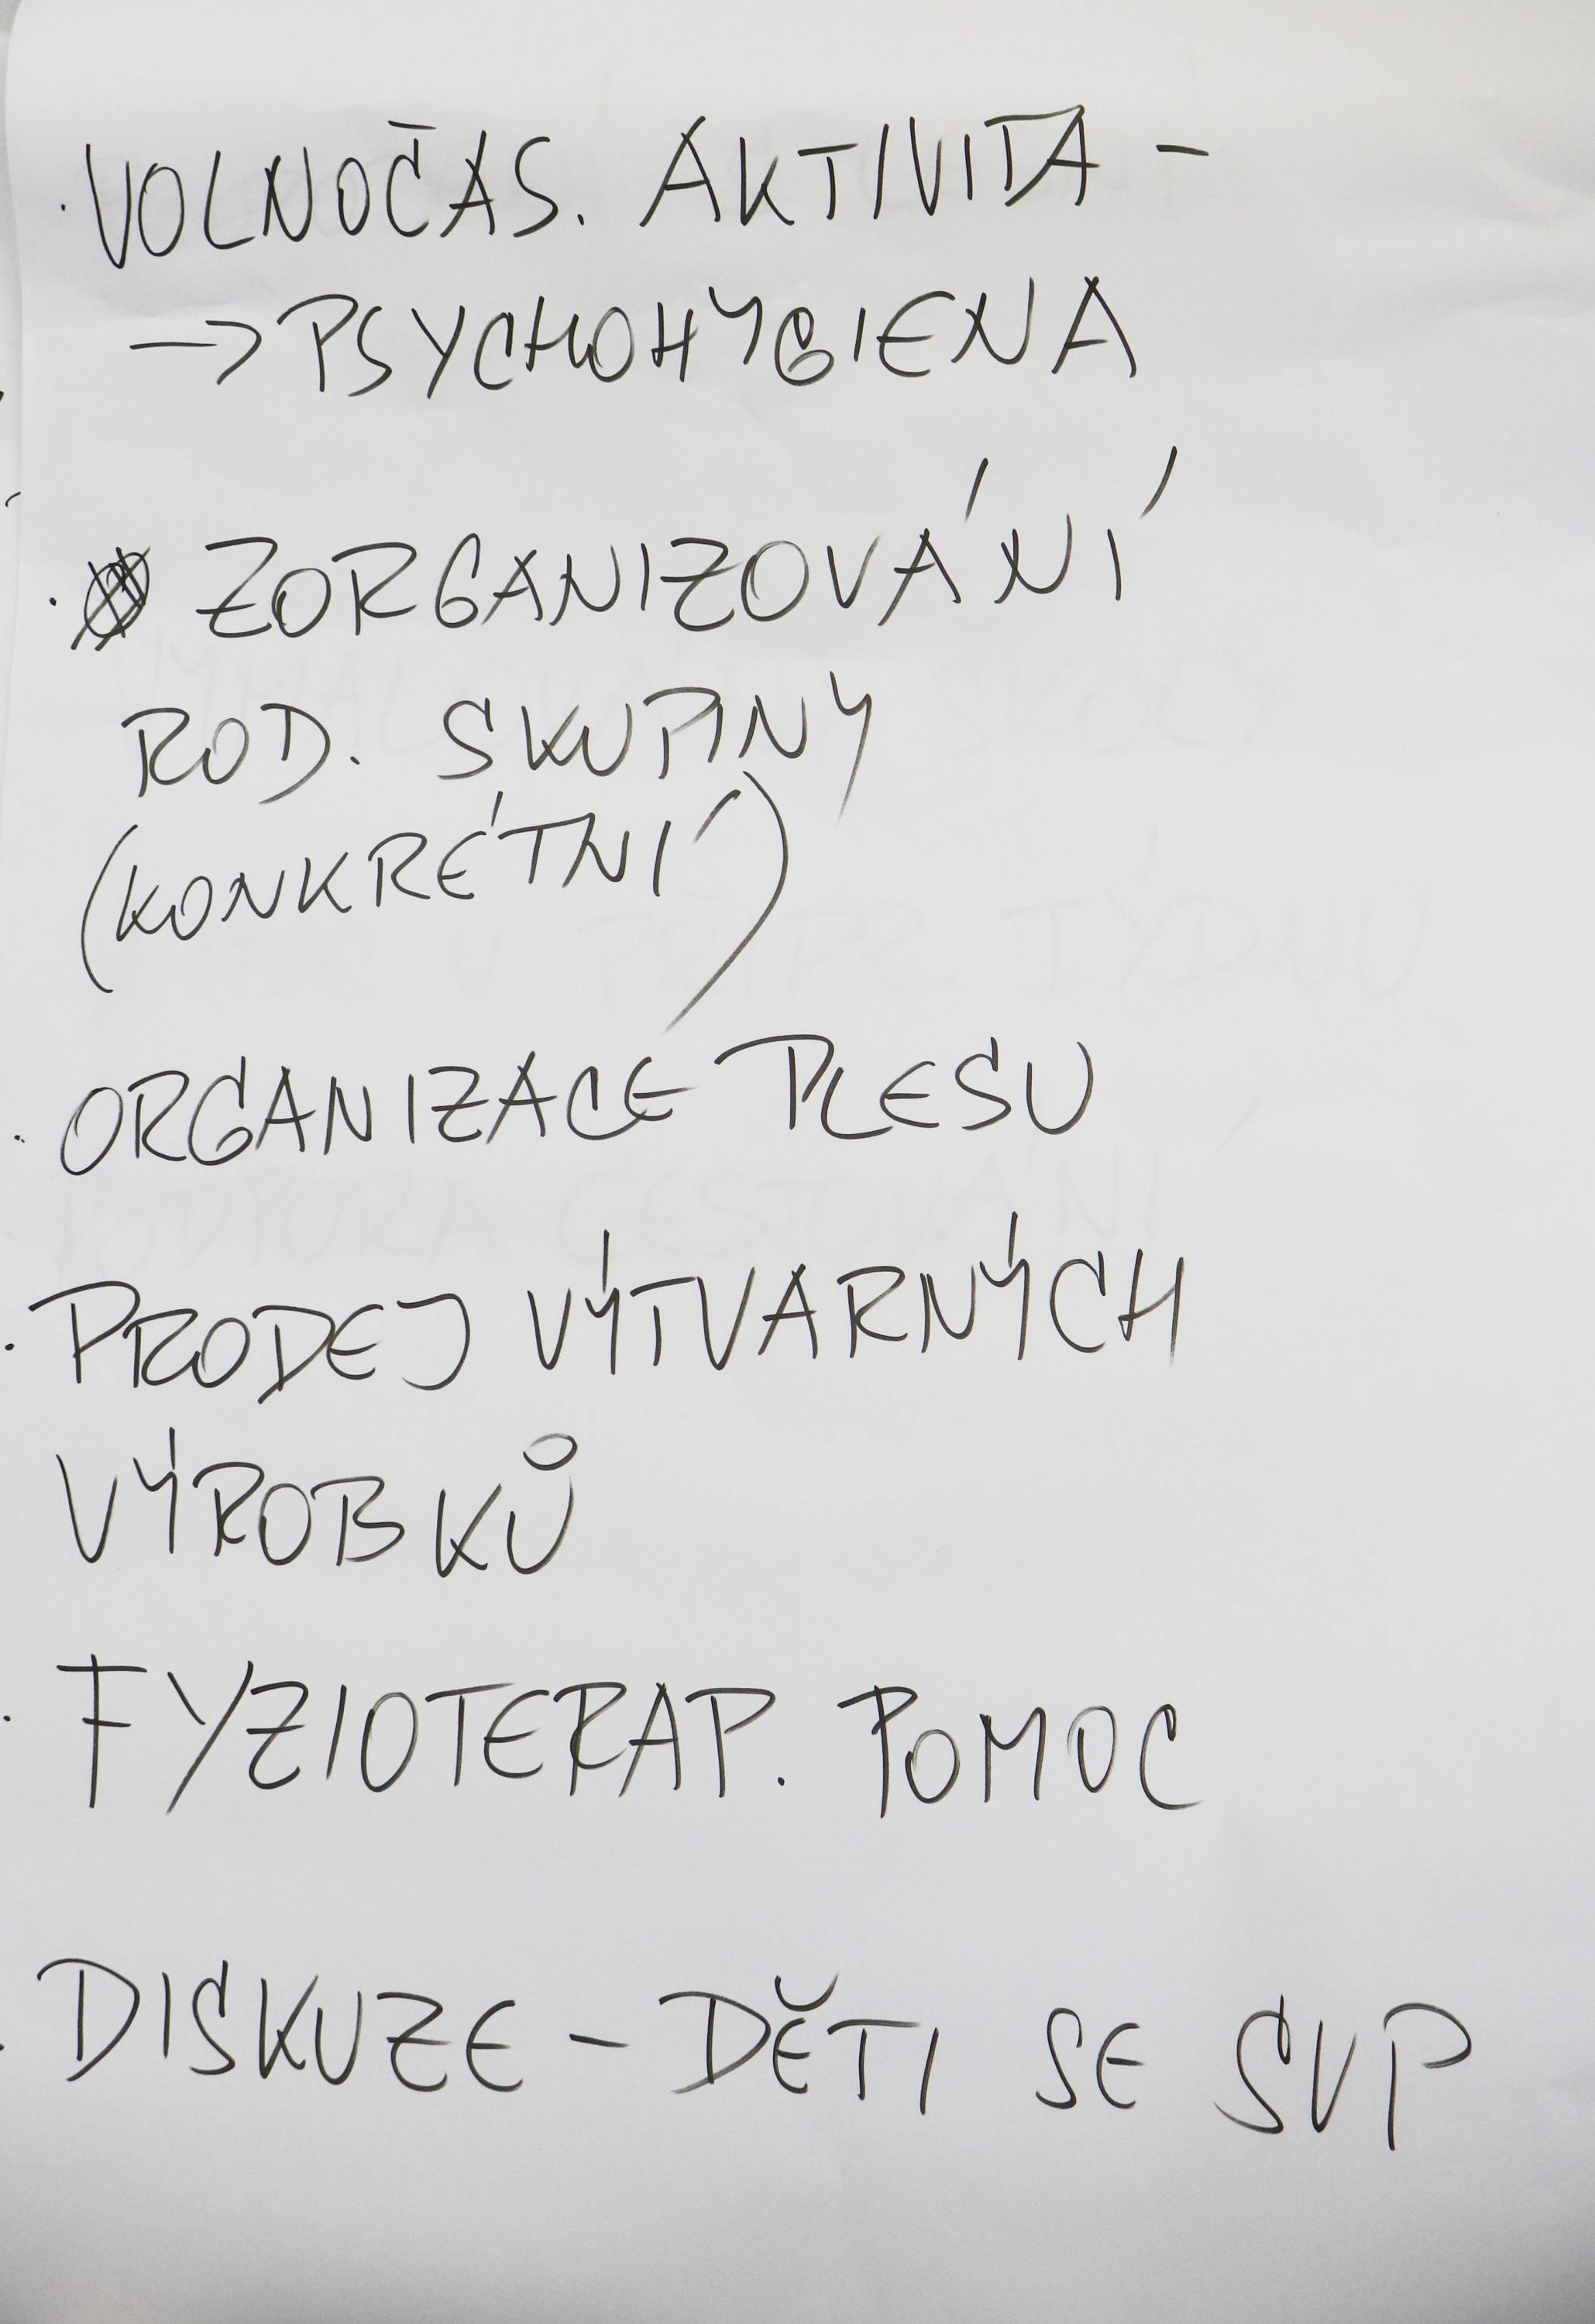 · VOLNOČAS. AKTIVITA -
→ PSYCHOHYGIENA
· ZORGANIZOVÁNÍ
ROD. SKUPINY
(KONKRÉTNÍ)
· ORGANIZACE PLESU
· PRODEJ VÝTVARNÝCH
VÝROBKŮ
· FYZIOTERAP. POMOC
· DISKUZE - DĚTI SE SVP